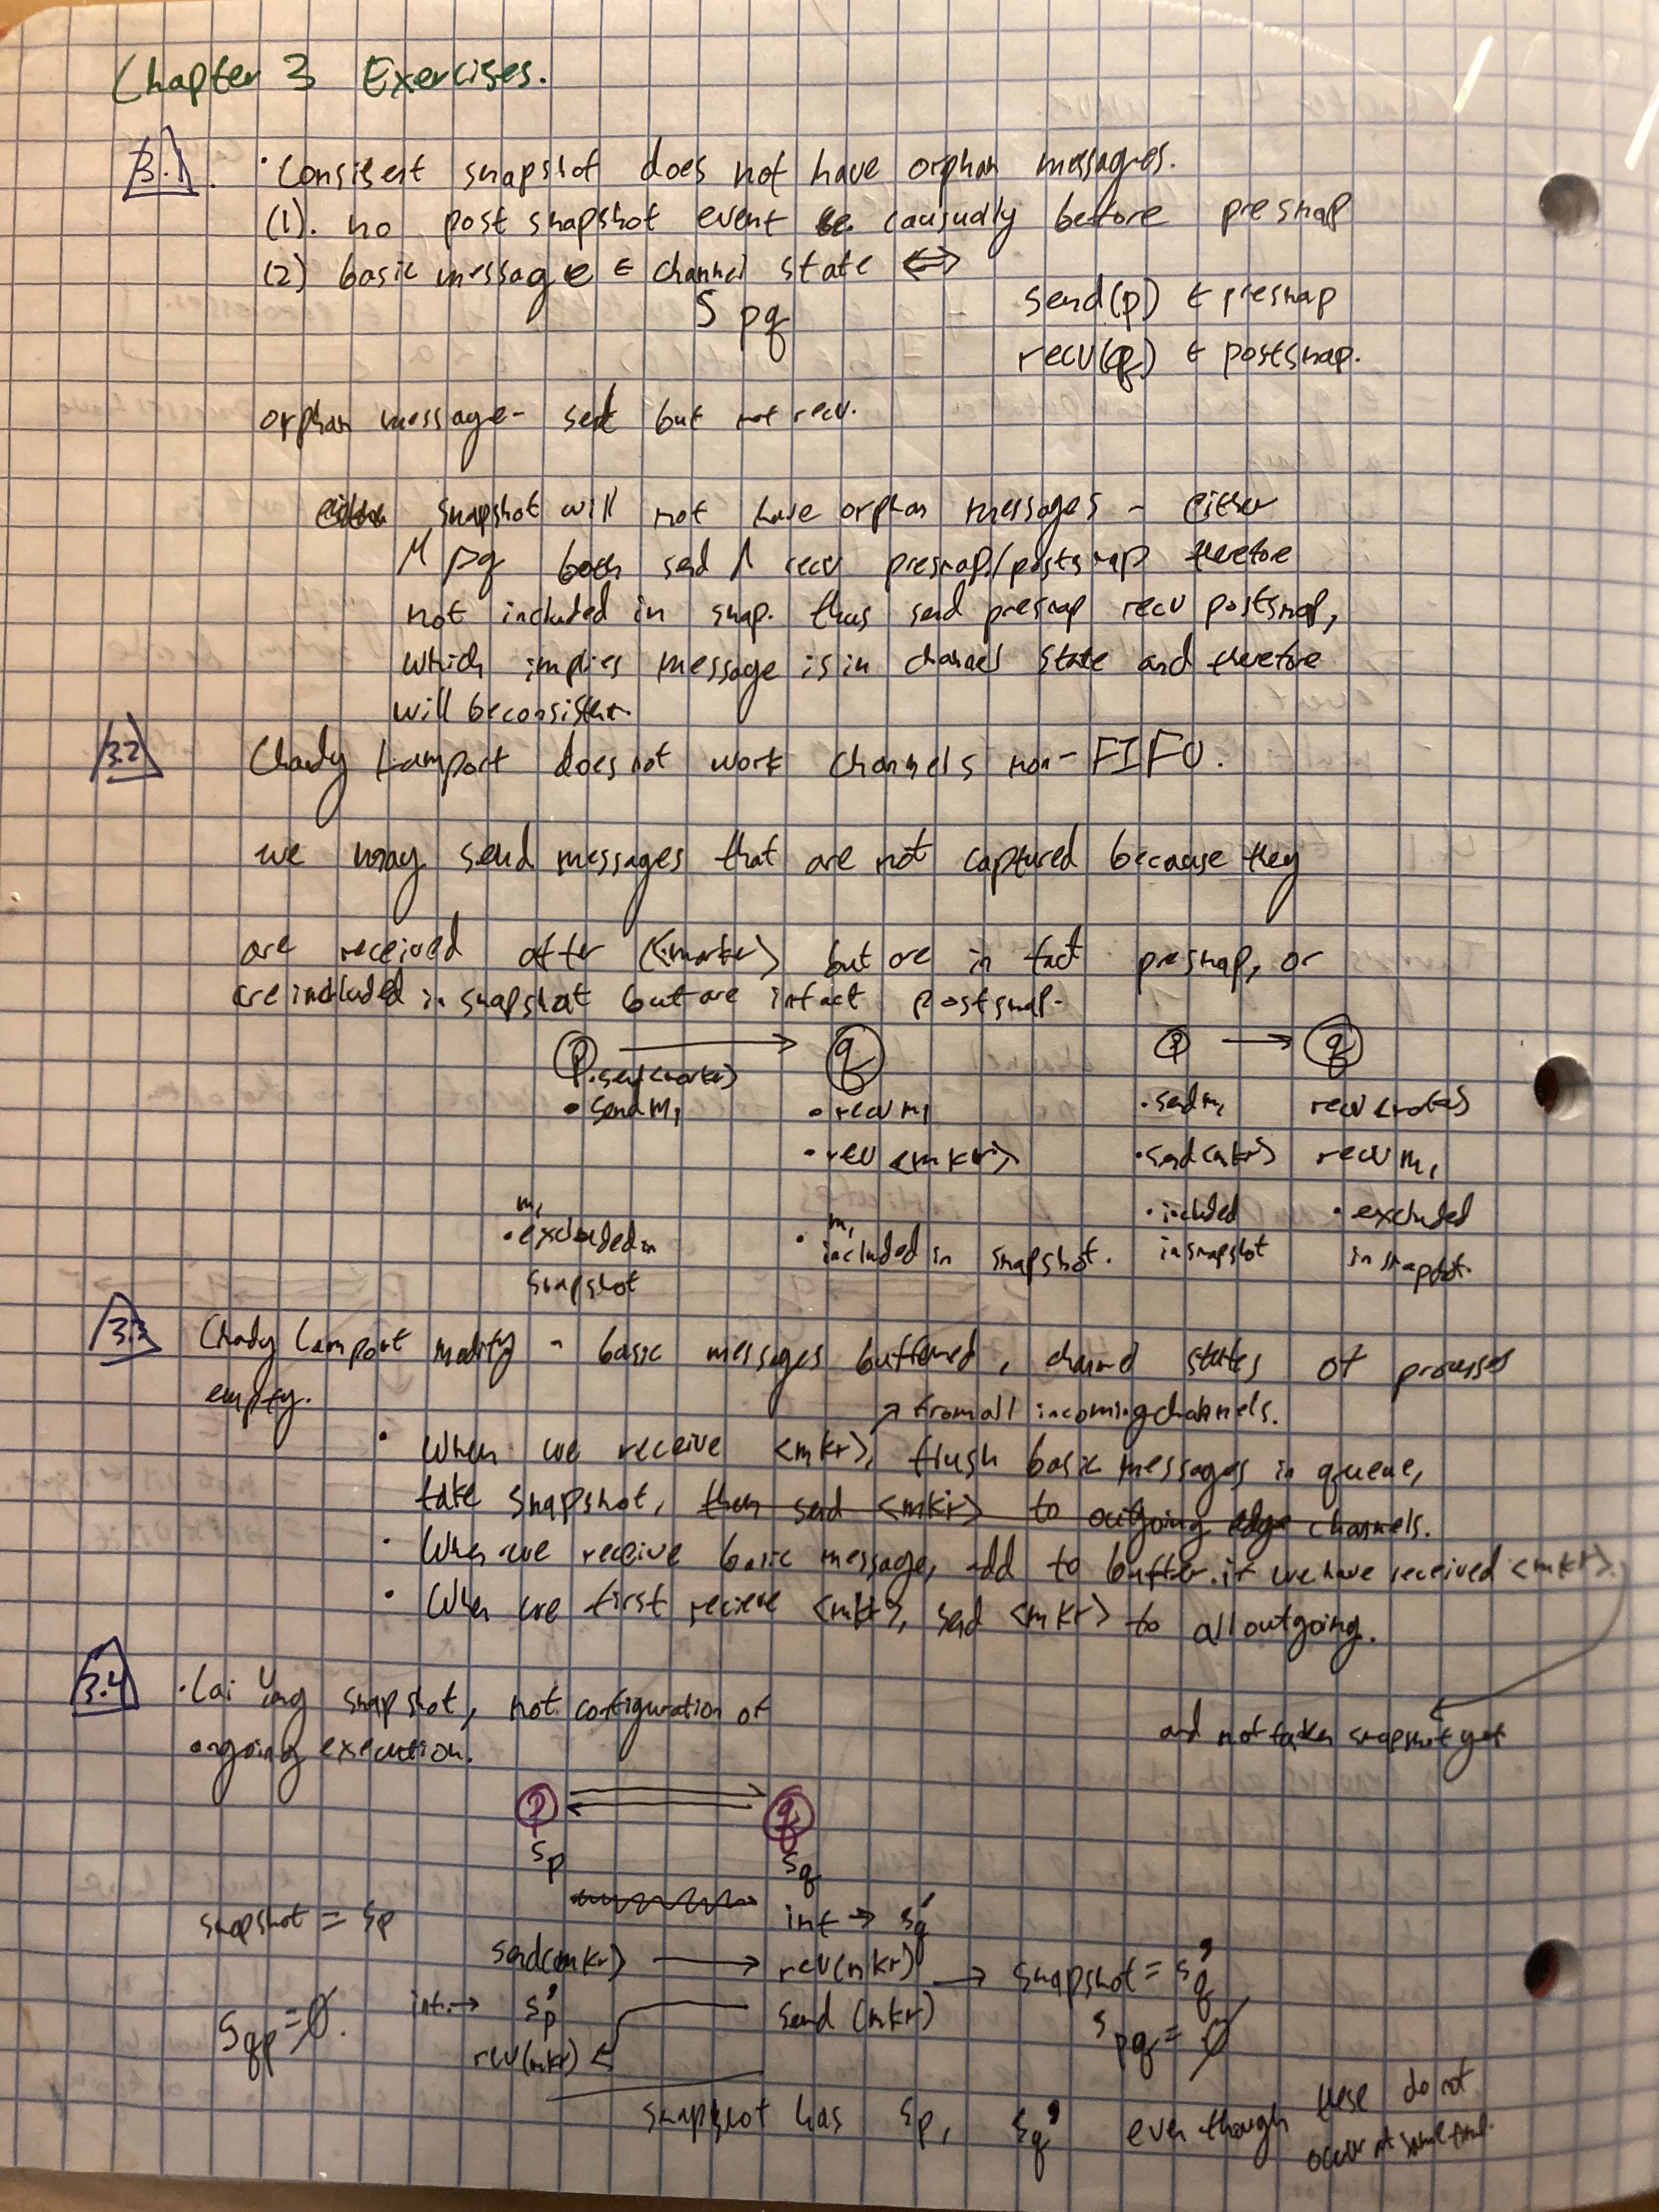 Chapter 3 Exercises.
3.1. · Consisent snapshot does not have orphan messages.
(1). no post snapshot event be causually before presnap
(2) basic message ∈ channel state ⟺
S pq
send(p) ∈ presnap
recv(q) ∈ postsnap.
orphan message - sent but not recv.
snapshot will not have orphan messages - either
M pq both send ∧ recv presnap/postsnap therefore
not included in snap. thus send presnap recv postsnap,
which implies message is in channel state and therefore
will be consistent.
3.2 Chandy Lamport does not work channels non-FIFO.
we may send messages that are not captured because they
are received after <marker> but are in fact presnap, or
are included in snapshot but are in fact postsnap.
p → q
· send<marker>
· send m1 · recv m1
· rev <mkr>
m1 · excluded in snapshot
m1 · included in snapshot.
p → q
· send m1 recv <marker>
· send<mkr> recv m1
· included in snapshot
· excluded in snapshot.
3.3 Chandy Lamport modify - basic messages buffered, channel states of processes
empty.
↗ from all incoming channels.
· When we receive <mkr>, flush basic messages in queue,
take snapshot, then send <mkr> to outgoing edge channels.
· When we receive basic message, add to buffer. if we have received <mkr>.
and not taken snapshot yet
· When we first recieve <mkr>, send <mkr> to all outgoing.
3.4 · Lai Yang snapshot, not configuration of
ongoing execution.
p q
sp sq
int → sq'
snapshot = sp
send(mkr) → rev(mkr) → snapshot = sq'
int → sp' send (mkr)
Sqp = ∅. Spq = ∅
rev(mkr)
snapshot has sp, sq' even though these do not
occur at same time.